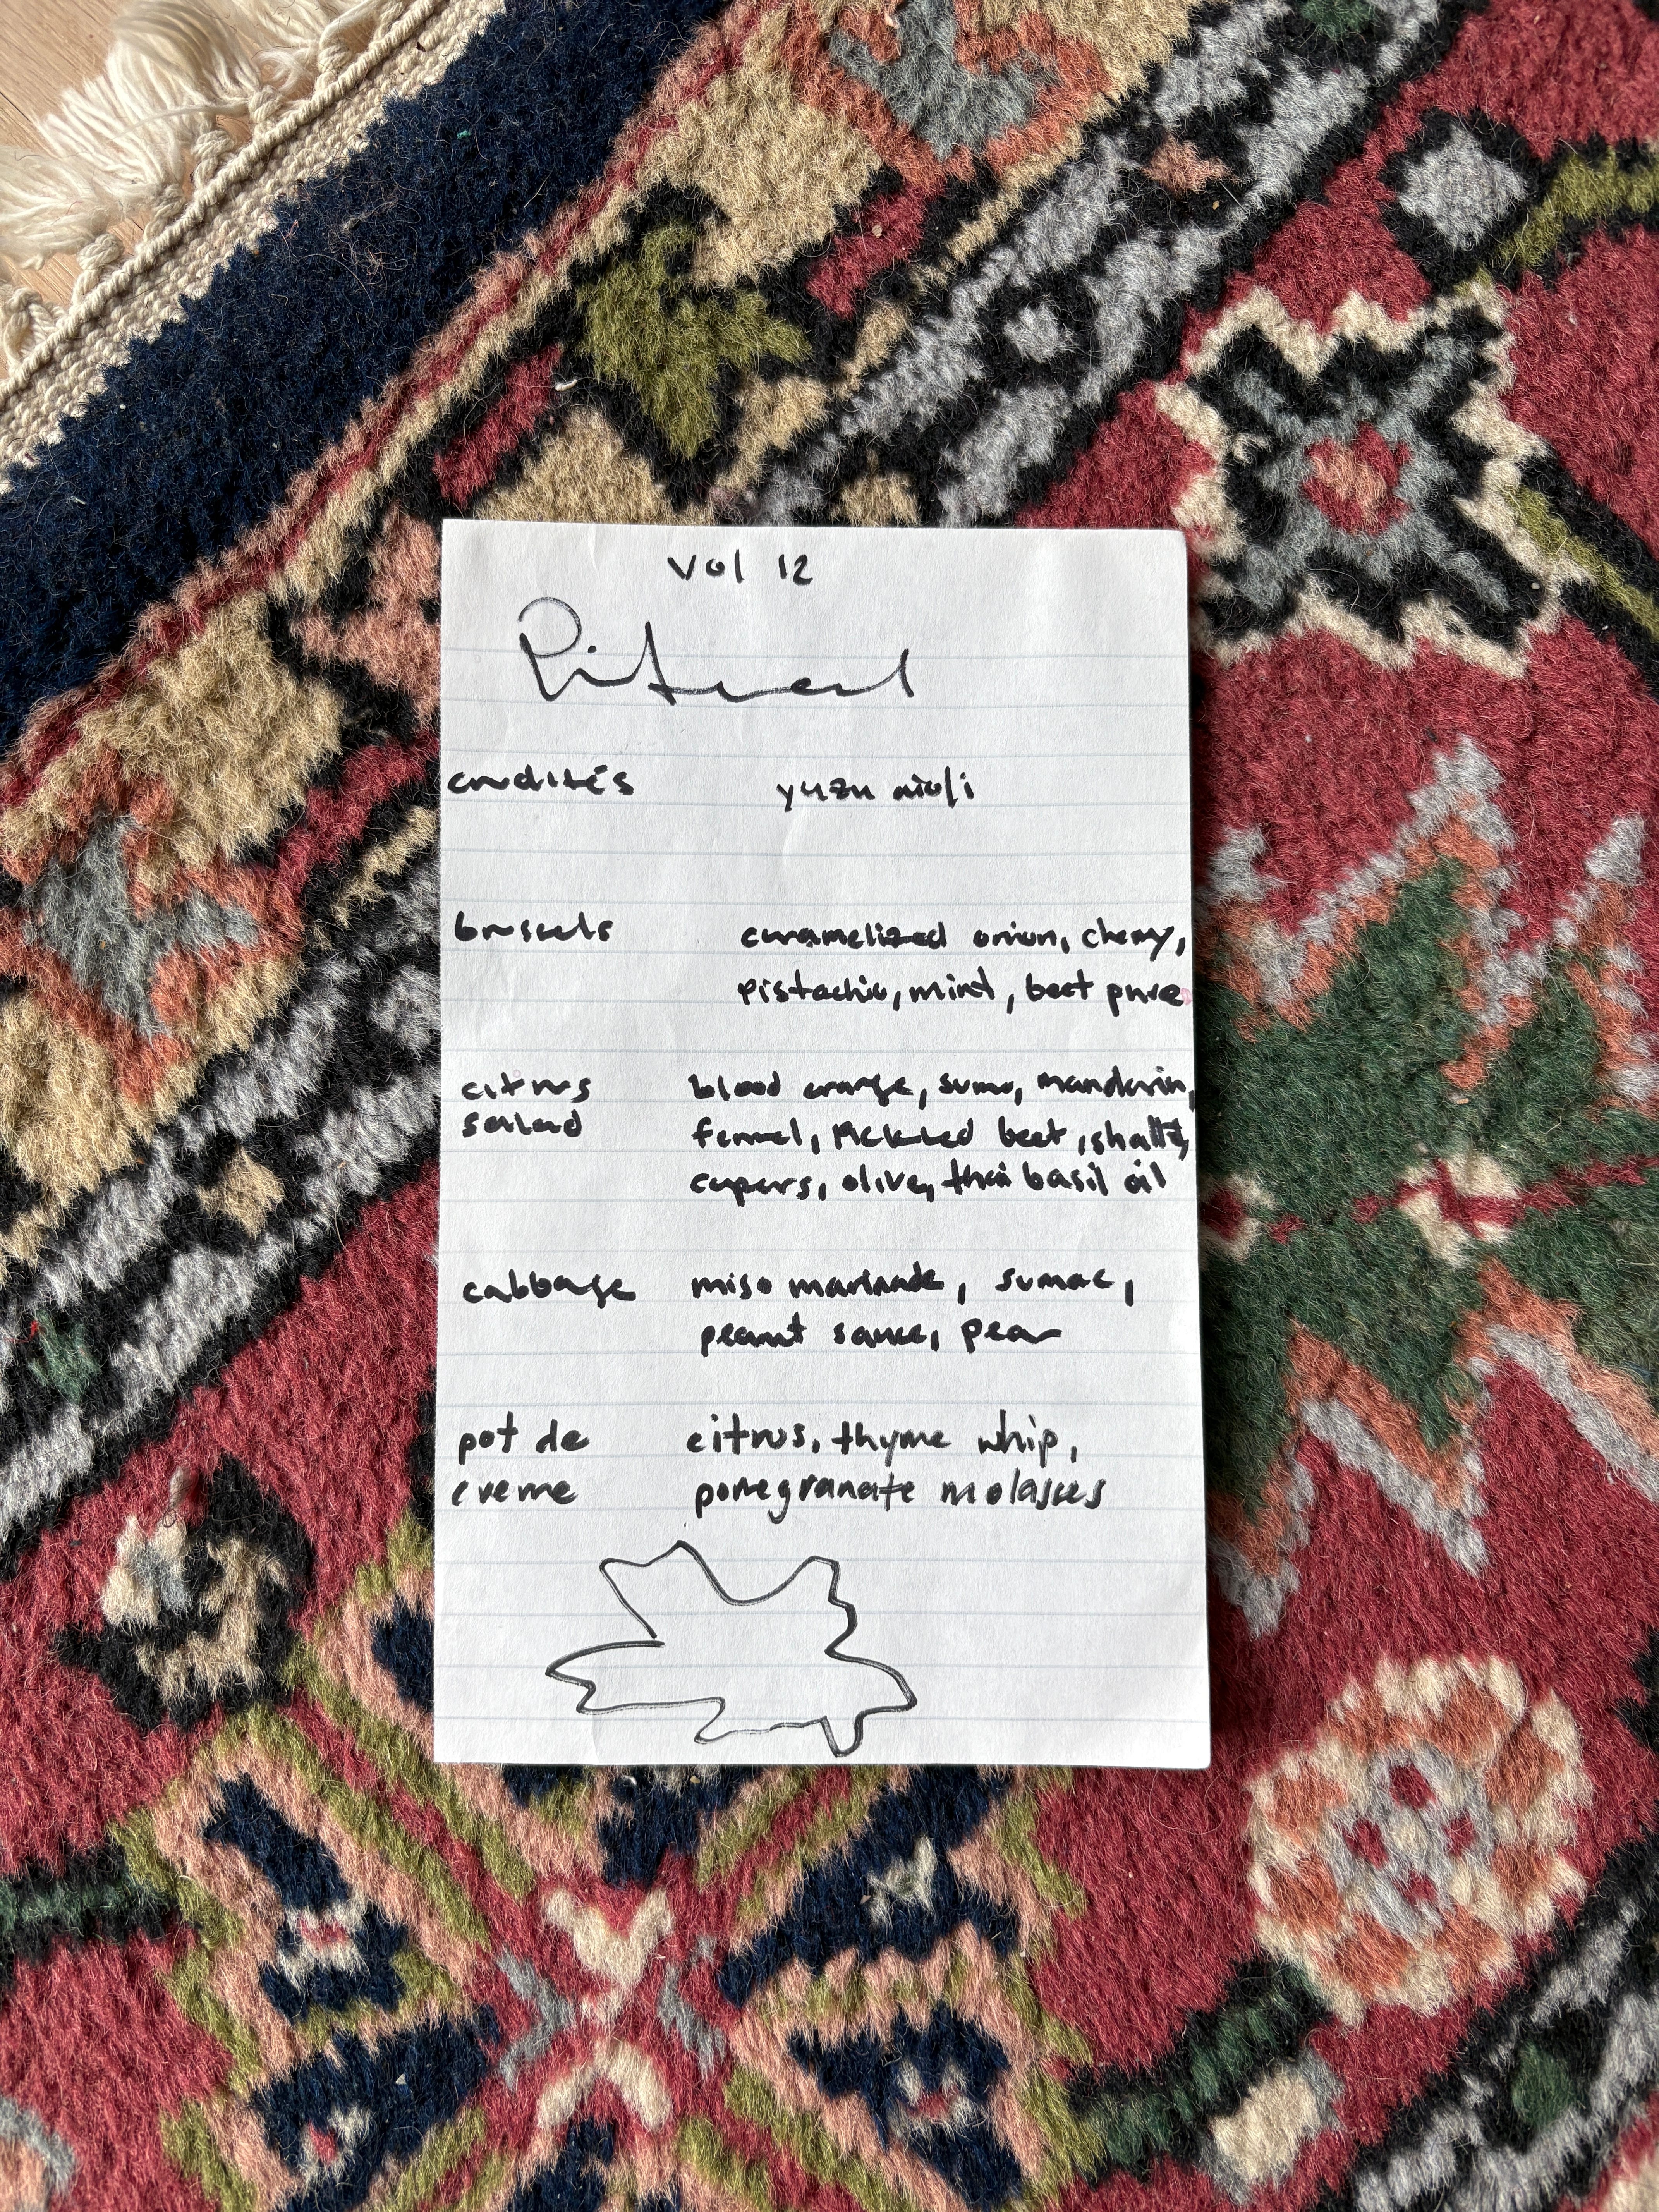 vol 12
crudités yuzu aioli
brussels caramelized onion, cherry,
pistachio, mint, beet puree
citrus blood orange, sumo, mandarin,
salad fennel, pickled beet, shallot,
capers, olive, thai basil oil
cabbage miso marinade, sumac,
peanut sauce, pear
pot de citrus, thyme whip,
creme pomegranate molasses